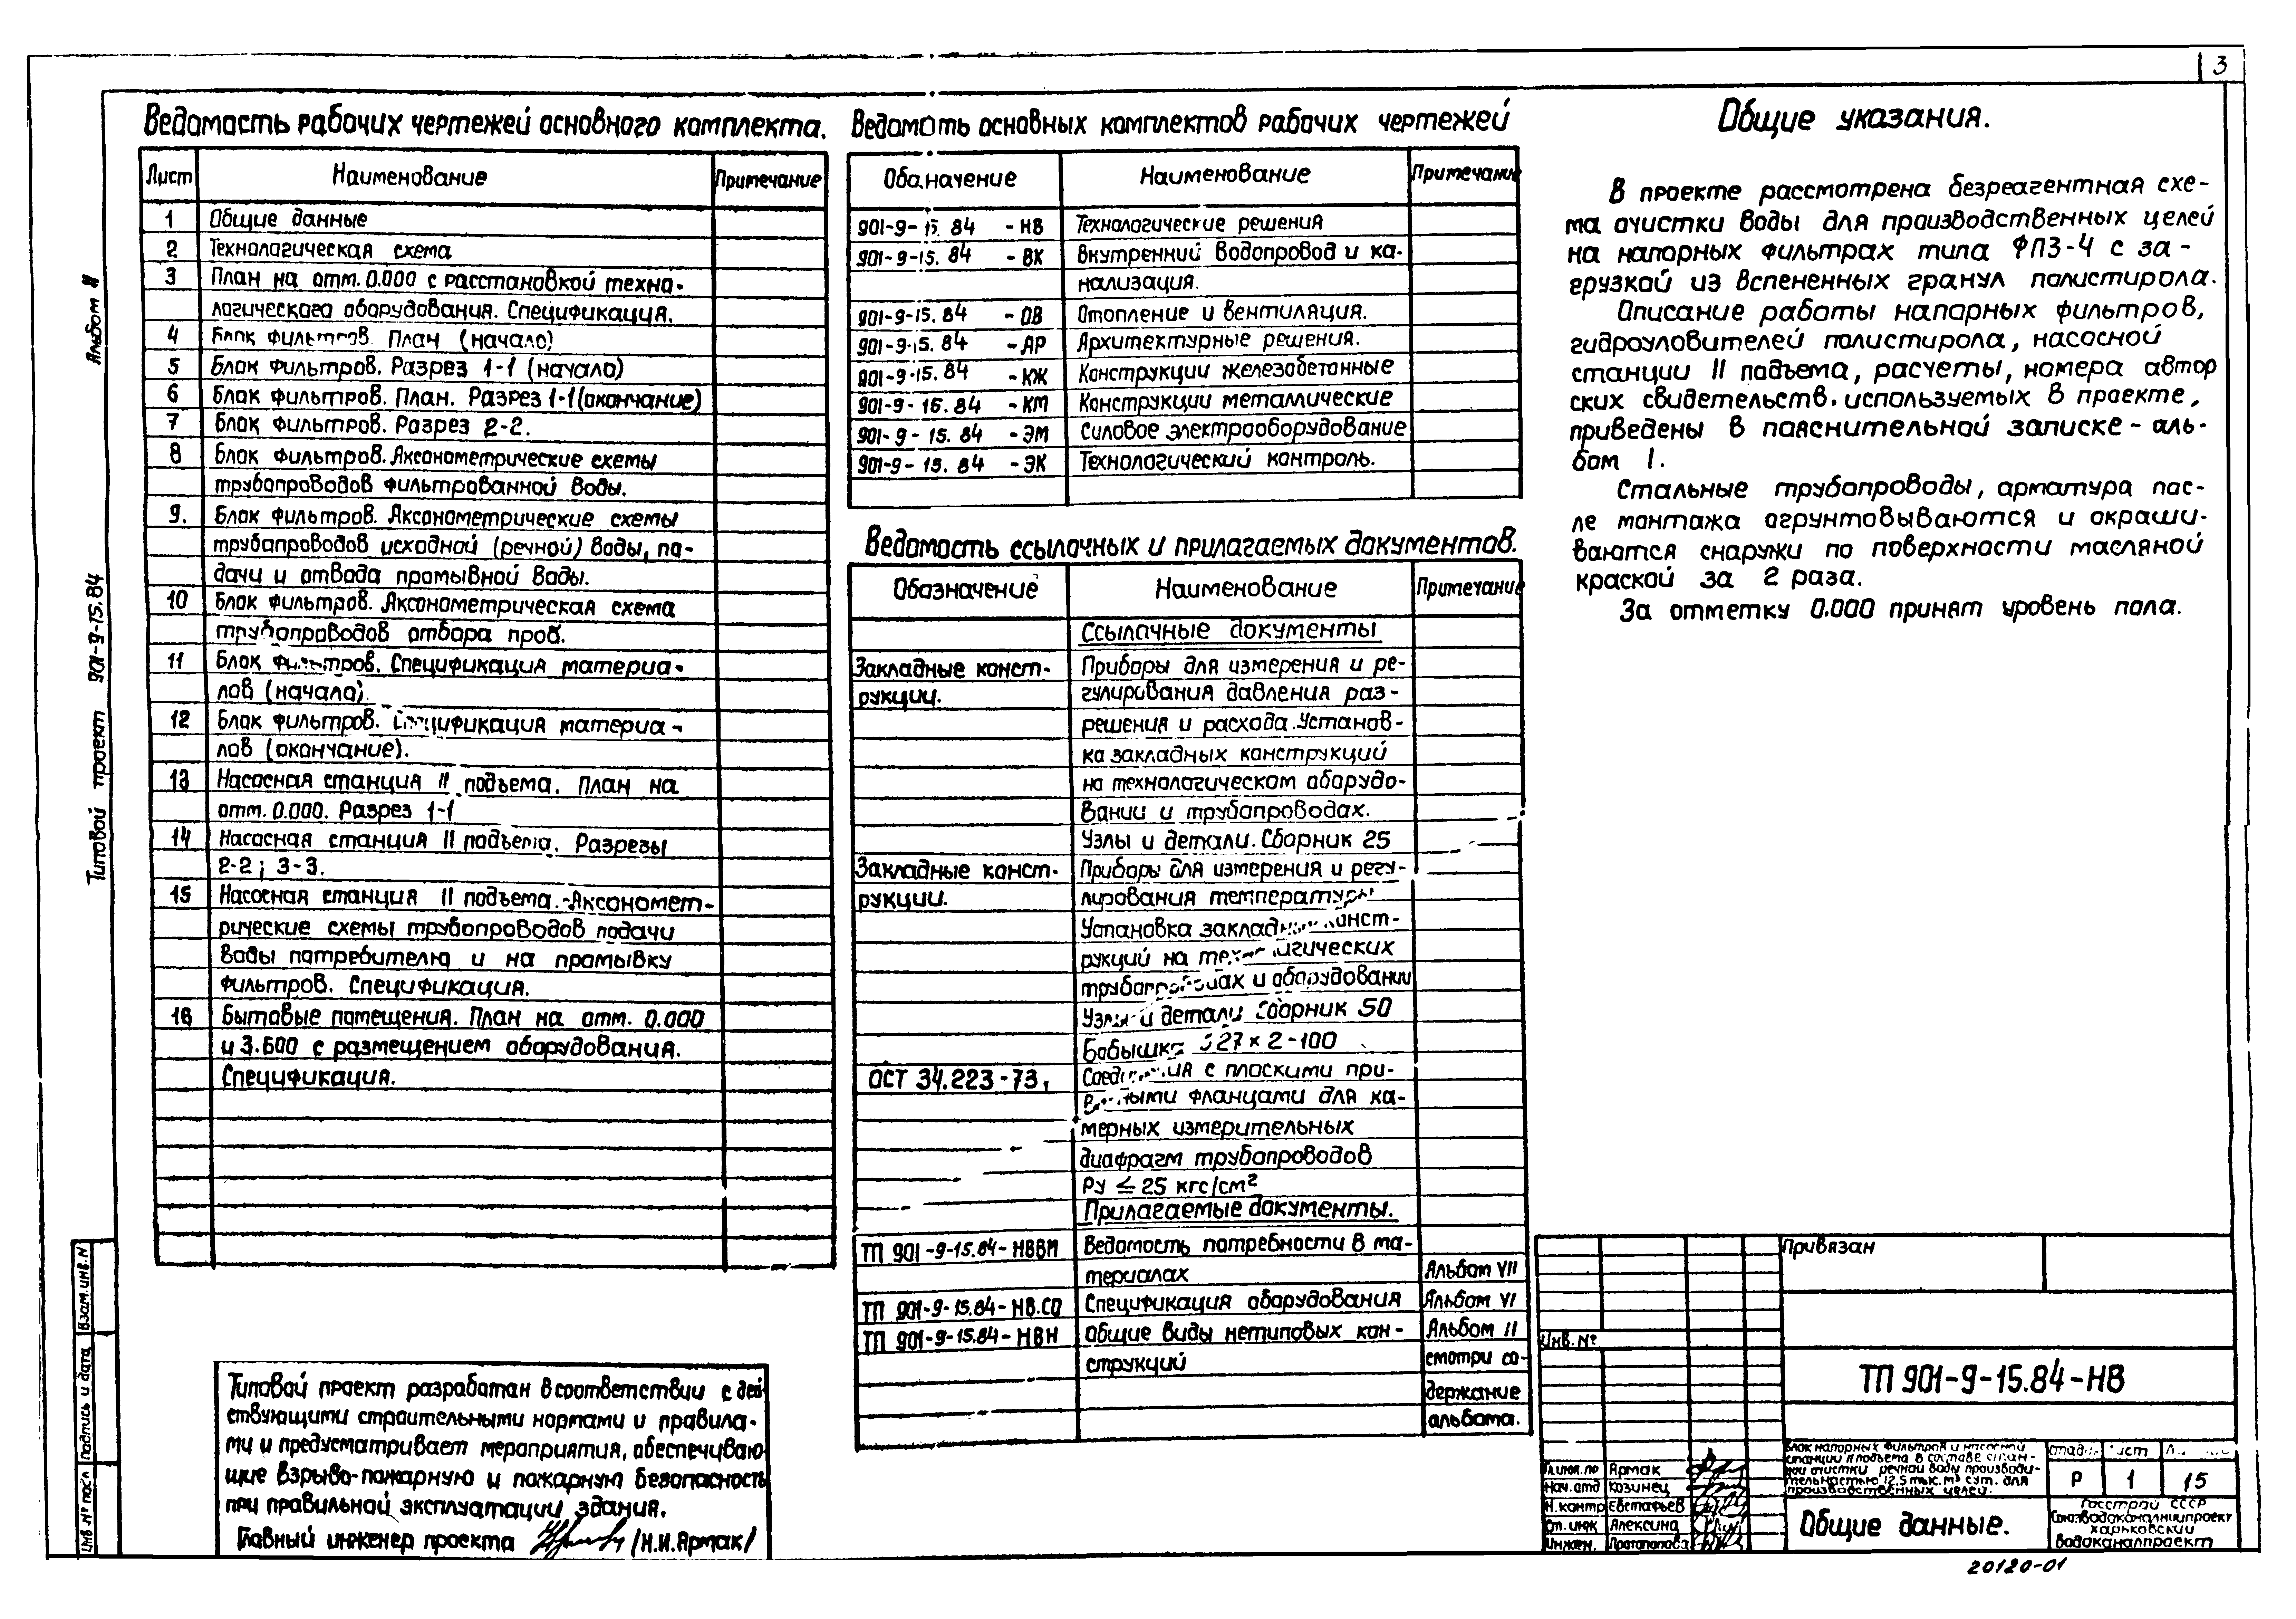 3
Ведомость рабочих чертежей основного комплекта.
Лист Наименование Примечание
1 Общие данные
2 Технологическая схема
3 План на отм. 0.000 с расстановкой техно-
логического оборудования. Спецификация.
4 Блок фильтров. План (начало)
5 Блок фильтров. Разрез 1-1 (начало)
6 Блок фильтров. План. Разрез 1-1 (окончание)
7 Блок фильтров. Разрез 2-2.
8 Блок фильтров. Аксонометрические схемы
трубопроводов фильтрованной воды.
9. Блок фильтров. Аксонометрические схемы
трубопроводов исходной (речной) воды, по-
дачи и отвода промывной воды.
10 Блок фильтров. Аксонометрическая схема
трубопроводов отбора проб.
11 Блок фильтров. Спецификация материа-
лов (начало).
12 Блок фильтров. Спецификация материа-
лов (окончание).
13 Насосная станция II подъема. План на
отм. 0.000. Разрез 1-1
14 Насосная станция II подъема. Разрезы
2-2; 3-3.
15 Насосная станция II подъема. Аксономет-
рические схемы трубопроводов подачи
воды потребителю и на промывку
фильтров. Спецификация.
16 Бытовые помещения. План на отм. 0.000
и 3.600 с размещением оборудования.
Спецификация.
Типовой проект разработан в соответствии с дей-
ствующими строительными нормами и правила-
ми и предусматривает мероприятия, обеспечиваю-
щие взрыво-пожарную и пожарную безопасность
при правильной эксплуатации здания.
Главный инженер проекта /Н.И.Ярмак/
Ведомоть основных комплектов рабочих чертежей
Обозначение Наименование Примечание
901-9-15.84 -НВ Технологические решения
901-9-15.84 -ВК Внутренний водопровод и ка-
нализация.
901-9-15.84 -ОВ Отопление и вентиляция.
901-9-15.84 -АР Архитектурные решения.
901-9-15.84 -КЖ Конструкции железобетонные
901-9-15.84 -КМ Конструкции металлические
901-9-15.84 -ЭМ Силовое электрооборудование
901-9-15.84 -ЭК Технологический контроль.
Ведомость ссылочных и прилагаемых документов.
Обозначение Наименование Примечание
Ссылочные документы
Закладные конст- Приборы для измерения и ре-
рукции. гулирования давления раз-
решения и расхода. Установ-
ка закладных конструкций
на технологическом оборудо-
вании и трубопроводах.
Узлы и детали. Сборник 25
Закладные конст- Приборы для измерения и регу-
рукции. лирования температуры
Установка закладных конст-
рукций на технологических
трубопроводах и оборудовании
Узлы и детали Сборник 50
Бобышка 27×2-100
ОСТ 34.223-73. Соединения с плоскими при-
варными фланцами для ка-
мерных измерительных
диафрагм трубопроводов
Ру ≤ 25 кгс/см²
Прилагаемые документы.
ТП 901-9-15.84-НВВМ Ведомость потребности в ма-
териалах Альбом VII
ТП 901-9-15.84-НВ.СО Спецификация оборудования Альбом VI
ТП 901-9-15.84-НВН Общие виды нетиповых кон- Альбом II
струкций смотри со-
держание
альбома.
Общие указания.
В проекте рассмотрена безреагентная схе-
ма очистки воды для производственных целей
на напорных фильтрах типа ФПЗ-4 с за-
грузкой из вспененных гранул полистирола.
Описание работы напорных фильтров,
гидроуловителей полистирола, насосной
станции II подъема, расчеты, номера автор
ских свидетельств, используемых в проекте,
приведены в пояснительной записке - аль-
бом I.
Стальные трубопроводы, арматура пос-
ле монтажа огрунтовываются и окраши-
ваются снаружи по поверхности масляной
краской за 2 раза.
За отметку 0.000 принят уровень пола.
Привязан
Инв. №
ТП 901-9-15.84-НВ
Гл.инж.пр Ярмак
Нач.отд Казинец
Н.контр Евстафьев
Ст.инж Алексина
Инжен. Протопопова
Блок напорных фильтров и насосной
станции II подъема в составе стан-
ции очистки речной воды производи-
тельностью 12.5 тыс. м³ сут. для
производственных целей.
Стадия Лист
Р 1 15
Общие данные.
Госстрой СССР
Союзводоканалниипроект
Харьковский
Водоканалпроект
20120-01
Альбом
Типовой проект 901-9-15.84
Взам.инв.N
Подпись и дата
Инв № подл